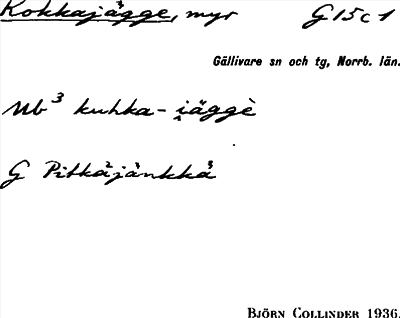 Kokkajågge, myr G 15 c 1
Gällivare sn och tg, Norrb. län.
Nb³ kuhka-i̯äggè
G Pitkäjänkkä
BJÖRN COLLINDER 1936.